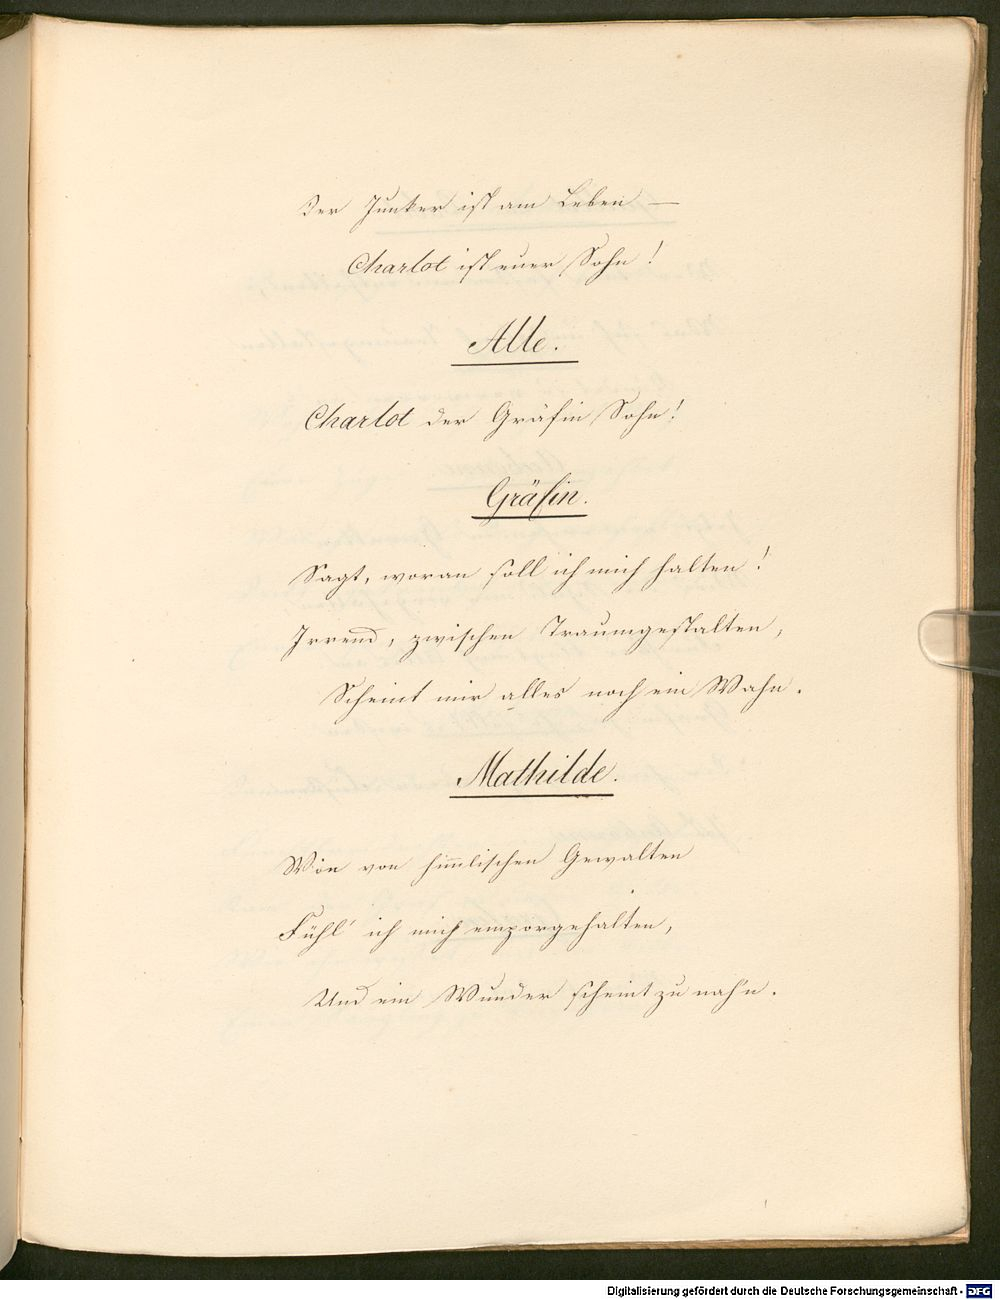 Der Junker ist am Leben —
Charlot ist euer Sohn!
Alle.
Charlot der Gräfin Sohn!
Gräfin.
Sagt, woran soll ich mich halten!
Irrend, zwischen Traumgestalten,
Scheint mir alles noch ein Wahn.
Mathilde.
Wie von himmlischen Gewalten
Fühl' ich mich emporgehalten,
Und ein Wunder scheint zu nah'n.
Digitalisierung gefördert durch die Deutsche Forschungsgemeinschaft - DFG